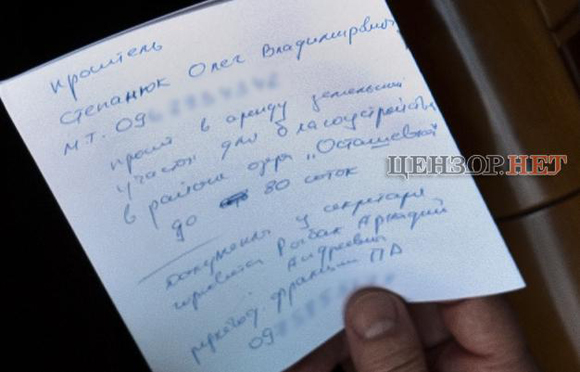 проситель
Степанюк Олег Владимирович
м.т. 09
просит в аренду земельный
участок для благоустройства
в районе озера „Осташевка"
до 80 соток
документы у секретаря
Рыбак Аркадий
Андреевич
руковод. фракции ПР
09
ЦЕНЗОР.НЕТ